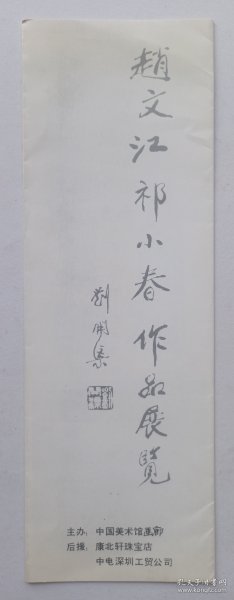 趙文江祁小春作品展覽
劉開渠
主办：中国美术馆画廊
后援：康北轩珠宝店
中电深圳工贸公司